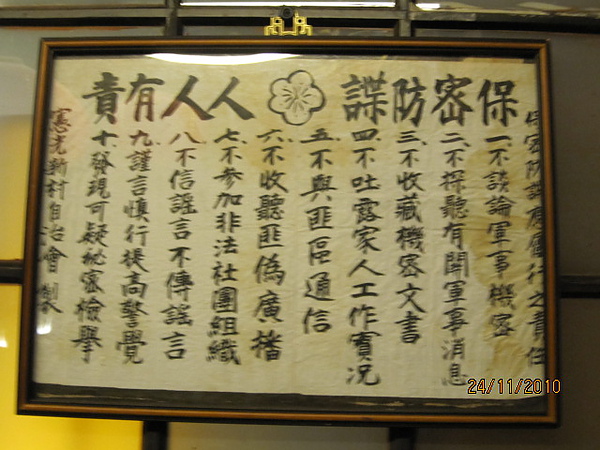 保密防諜 人人有責
保密防諜應履行之責任
一、不談論軍事機密
二、不探聽有關軍事消息
三、不收藏機密文書
四、不吐露家人工作實況
五、不與匪區通信
六、不收聽匪偽廣播
七、不參加非法社團組織
八、不信謠言不傳謠言
九、謹言慎行提高警覺
十、發現可疑秘密檢舉
憲光新村自治會 製
24/11/2010